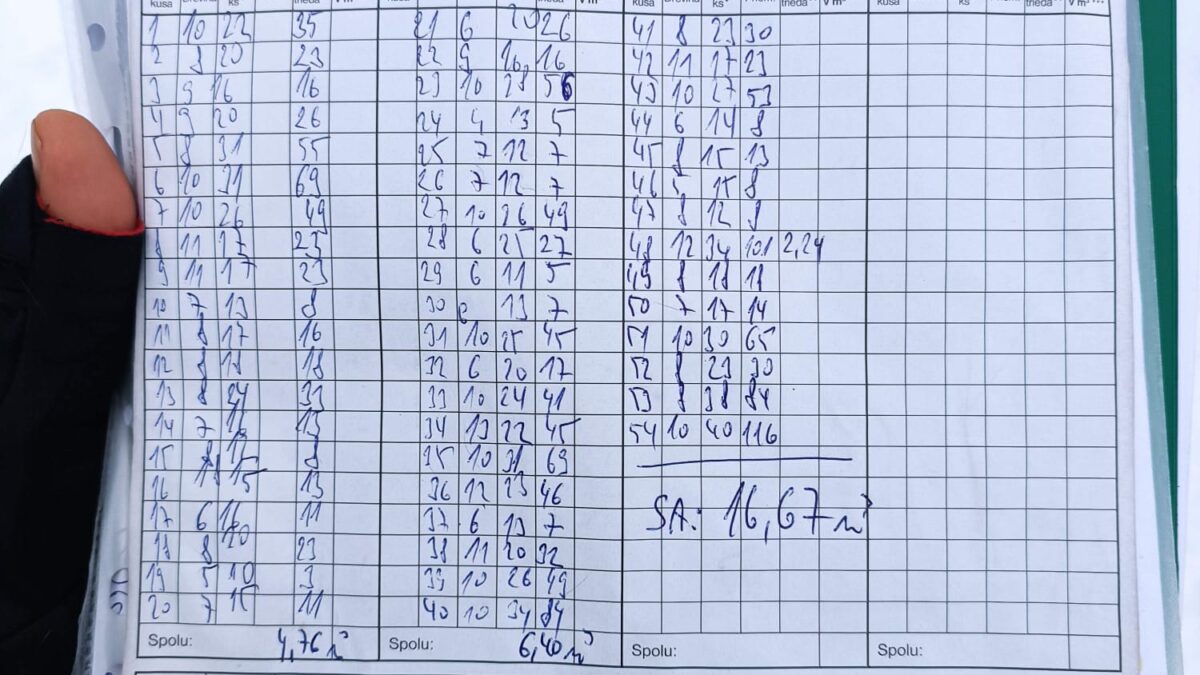 kusa ks trieda V m³
1 10 22 35 21 6 20 26 41 8 23 30
2 8 20 23 22 9 16 16 42 11 17 23
3 9 16 16 23 10 28 56 43 10 27 53
4 9 20 26 24 4 13 5 44 6 14 8
5 8 31 55 25 7 12 7 45 8 15 13
6 10 31 69 26 7 12 7 46 5 15 8
7 10 26 49 27 10 26 49 47 8 12 8
8 11 17 23 28 6 25 27 48 12 34 101 2,24
9 11 17 23 29 6 11 5 49 8 18 18
10 7 13 8 30 13 7 50 7 17 14
11 8 17 16 31 10 25 45 51 10 30 65
12 8 18 18 32 6 20 17 52 8 23 30
13 8 24 33 33 10 24 41 53 8 38 84
14 7 16 13 34 13 22 45 54 10 40 116
15 8 12 8 35 10 31 69
16 15 13 36 12 23 46
17 6 16 11 37 6 13 7 SA: 16,67 m³
18 8 20 23 38 11 20 32
19 5 10 3 39 10 26 49
20 7 15 11 40 10 34 84
Spolu: 4,76 m³ Spolu: 6,40 m³ Spolu: Spolu: